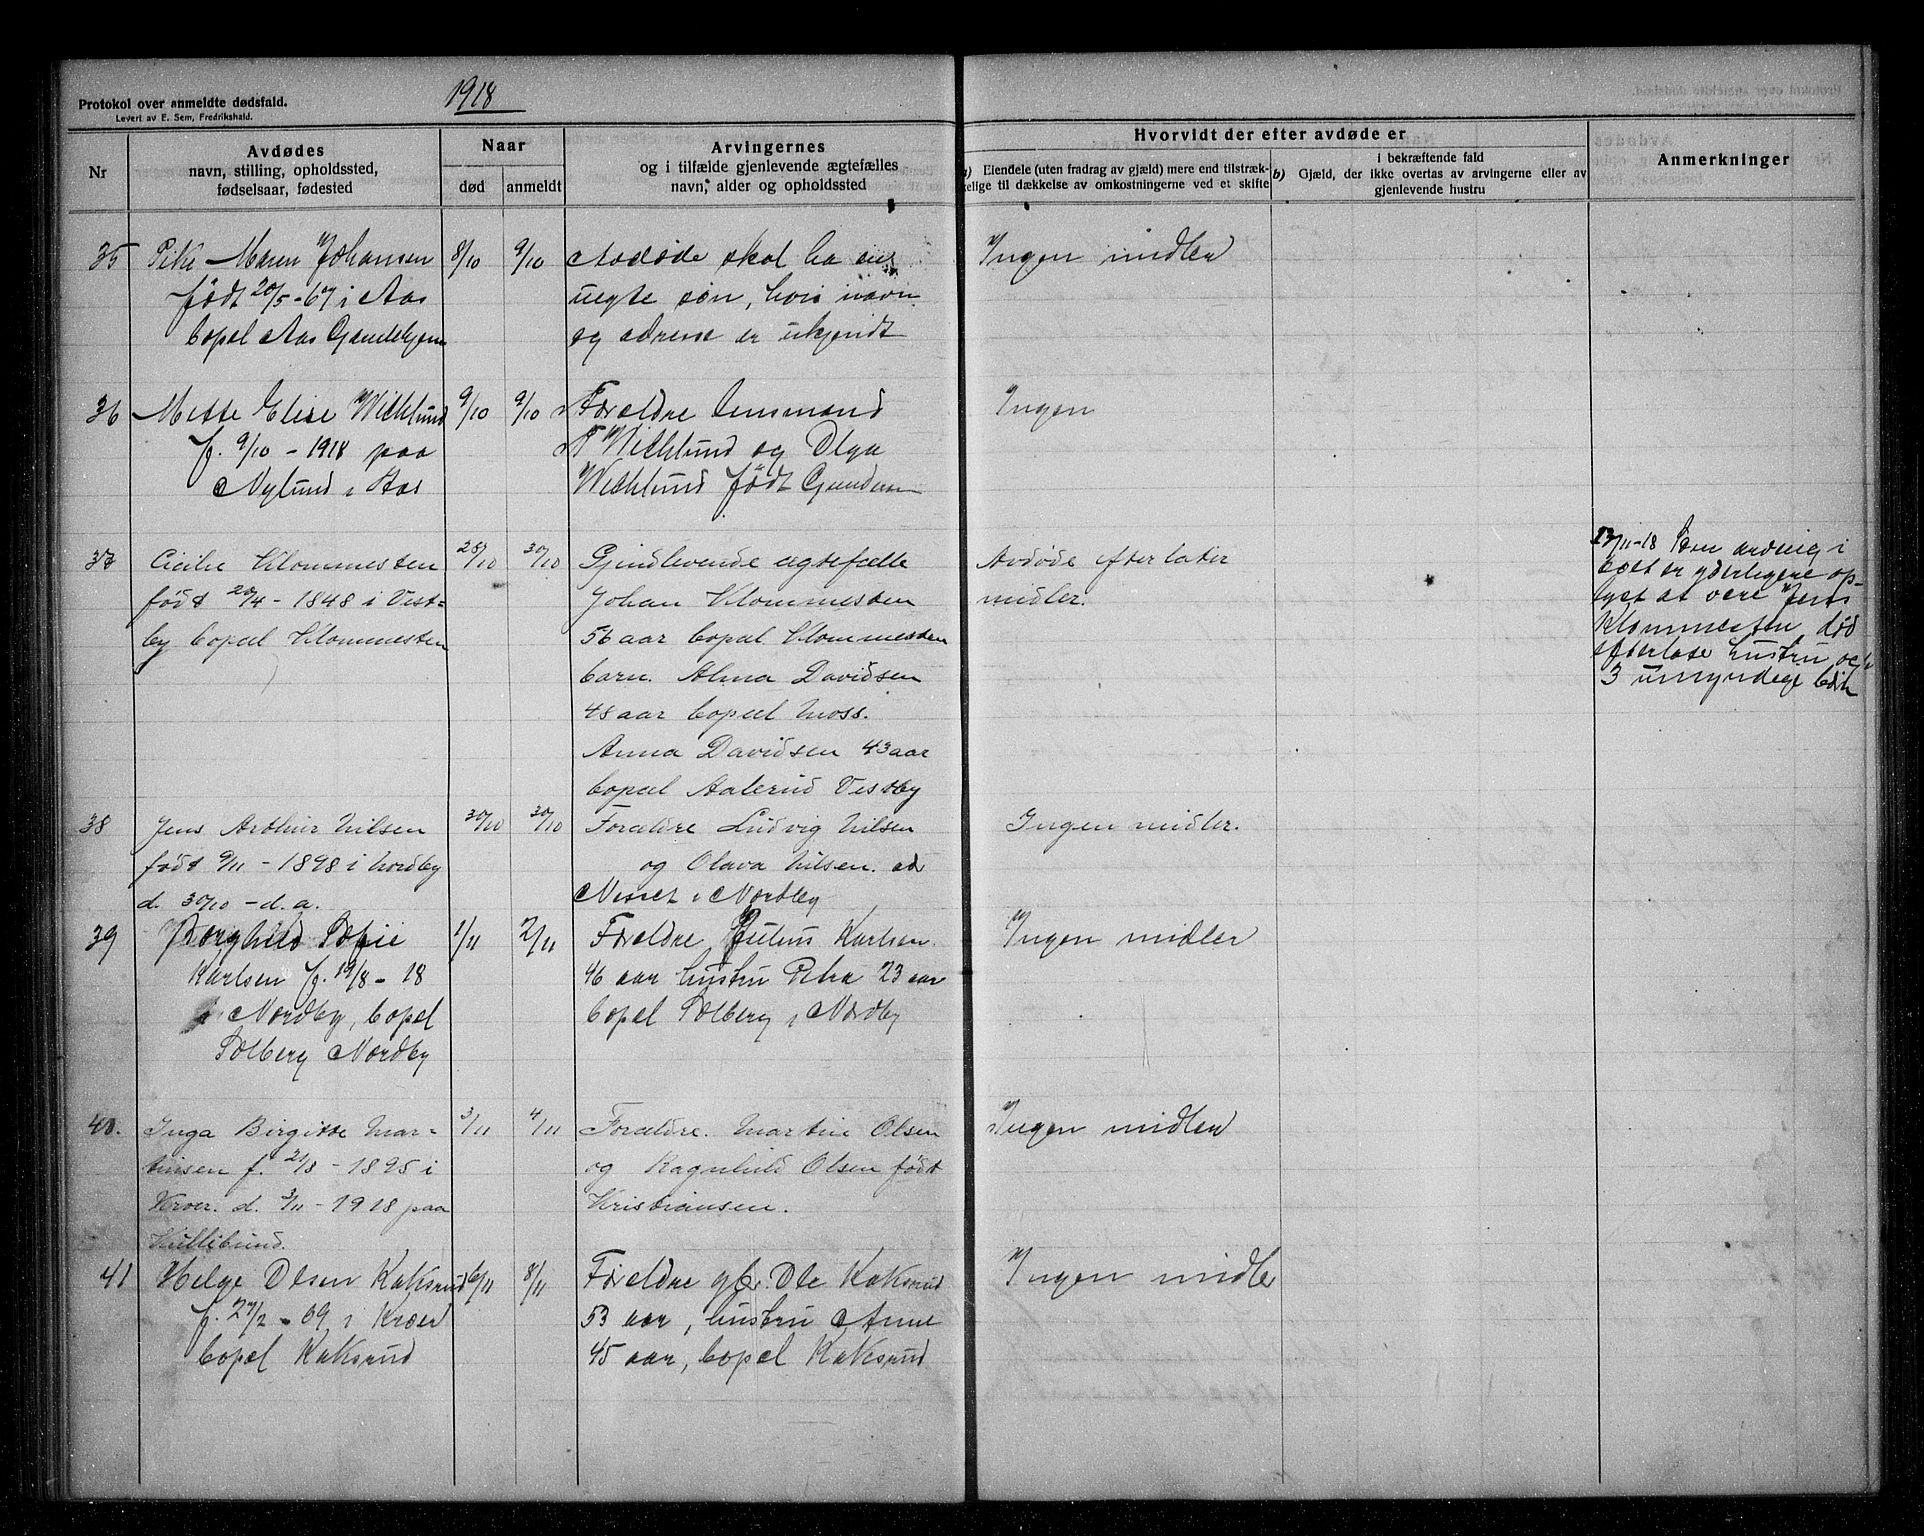 Protokol over anmeldte dødsfald.
Levert av E. Sem, Fredrikshald.
1918
Nr
Avdødes
navn, stilling, opholdssted,
fødselsaar, fødested
Naar
død
anmeldt
Arvingernes
og i tilfælde gjenlevende ægtefælles
navn, alder og opholdssted
Hvorvidt der efter avdøde er
a) Eiendele (uten fradrag av gjæld) mere end tilstræk-
kelige til dækkelse av omkostningerne ved et skifte
i bekræftende fald
b) Gjæld, der ikke overtas av arvingerne eller av
gjenlevende hustru
Anmerkninger
35
Pike Maren Johansen
født 20/5-67 i Aas
bopel Aas Gamlehjem
8/10
9/10
Avdøde skal ha en
uegte søn, hvis navn
og adresse er ukjendt
Ingen midler
36
Mette Elise Wicklund
f. 9/10 - 1918 paa
Nylund i Aas
9/10
9/10
Forældre
Wicklund og Olga
Wicklund født
Ingen
37
Cicilie Klommesten
født 20/4 - 1848 i Vest-
by bopæl Klommesten
28/10
30/10
Gjenlevende ægtefælle
Johan Klommesten
56 aar bopæl Klommesten
barn. Alma Davidsen
48 aar bopæl Moss.
Anna Davidsen 43 aar
bopæl Aalerud Vestby
Avdøde efterlater
midler.
13/11-18 Som arving i
boet er yderligere op-
lyst at være Jens
Klommesten, død
efterlot hustru og
3 umyndige børn
38
Jens Arthur Nilsen
født 9/11 - 1898 i Nordby
d. 30/10 - d. a.
30/10
30/10
Forældre Ludvig Nilsen
og Olava Nilsen. adr
Nesset i Nordby
Ingen midler.
39
Borghild Sofie
Karlsen f. 19/8 - 18
i Nordby, bopel
Solberg Nordby
1/11
2/11
Forældre Julius Karlsen
46 aar hustru Petra 23 aar
bopel Solberg i Nordby
Ingen midler
40.
Inga Birgitte Mar-
tinsen f. 21/8 - 1895 i
Kroer. d. 3/11 - 1918 paa
3/11
4/11
Forældre. Martin Olsen
og Ragnhild Olsen født
Kristiansen.
Ingen midler
41
Helge Olsen Kaksrud
f. 27/2 - 09 i Kroer
bopel Kaksrud
6/11
8/11
Forældre gbr. Ole Kaksrud
53 aar, hustru Anne
45 aar, bopel Kaksrud
Ingen midler